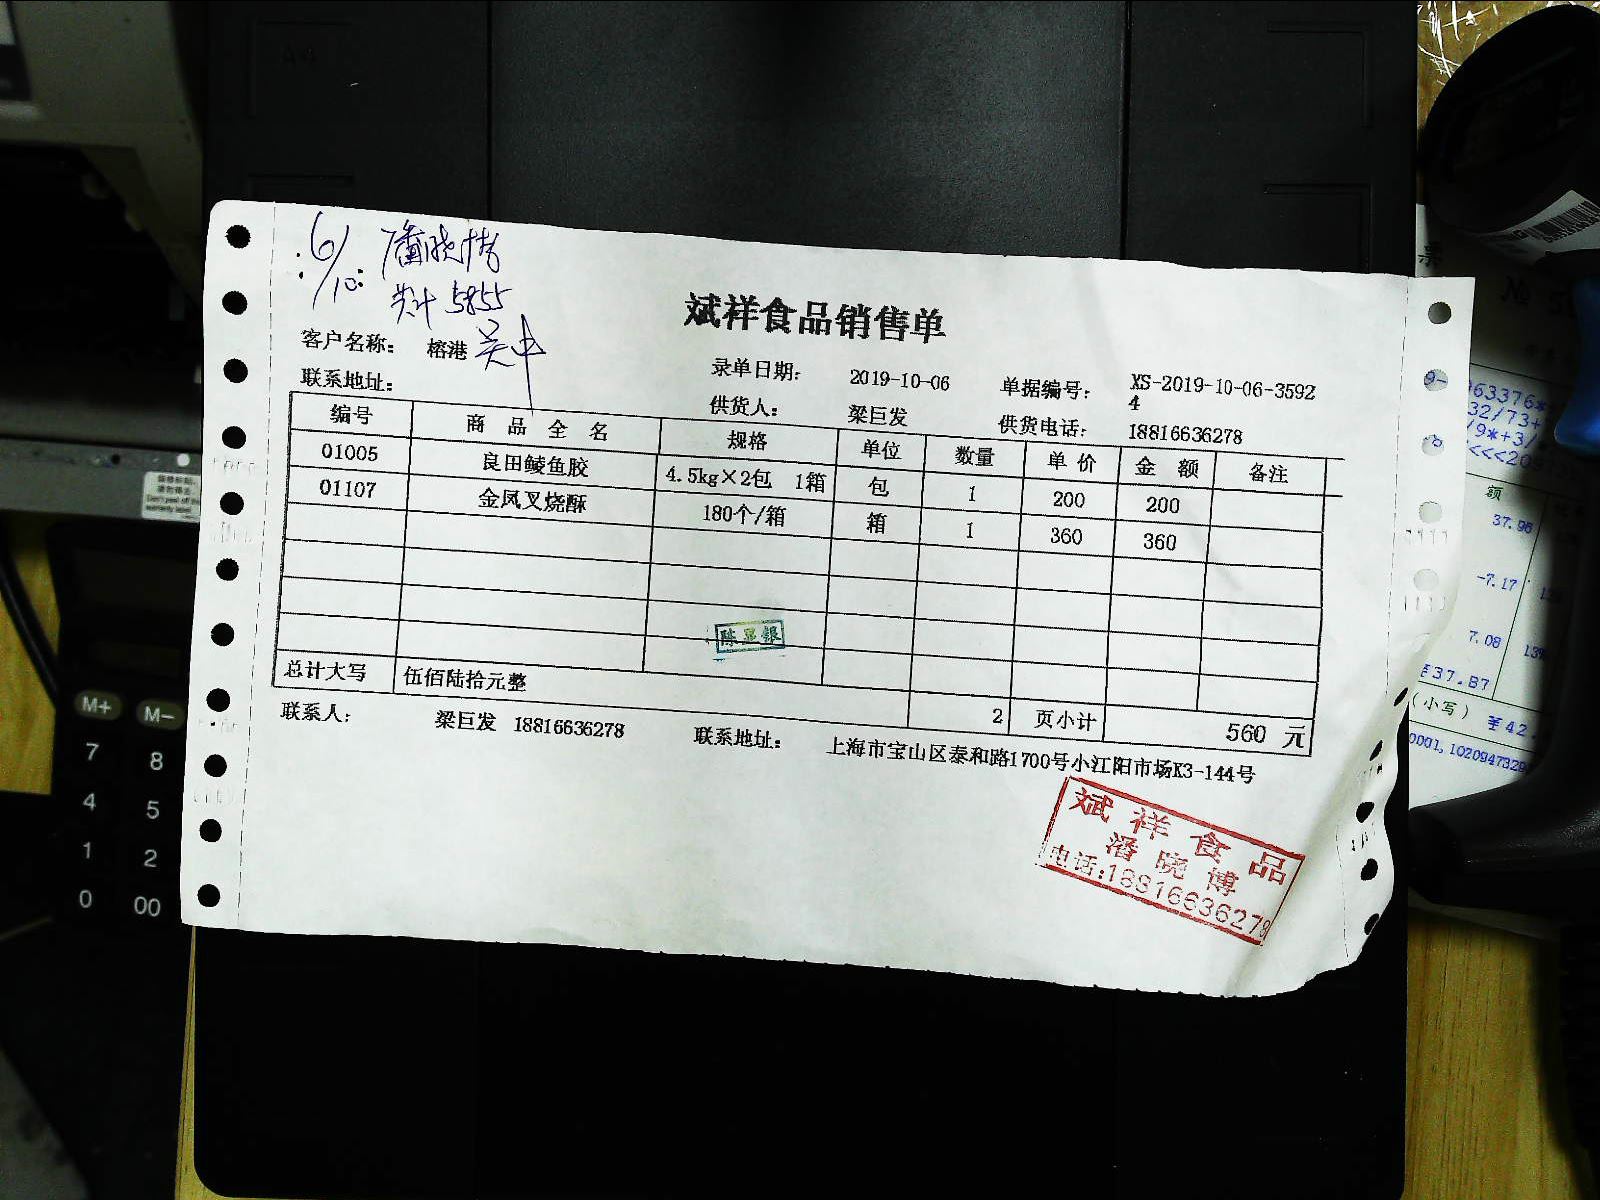 6/10 潘晓博
共计 5855
斌祥食品销售单
客户名称: 榕港 吴中
录单日期: 2019-10-06 单据编号: XS-2019-10-06-35924
联系地址:
供货人: 梁巨发 供货电话: 18816636278
编号 商品全名 规格 单位 数量 单价 金额 备注
01005 良田鲮鱼胶 4.5kg×2包 1箱 包 1 200 200
01107 金凤叉烧酥 180个/箱 箱 1 360 360
总计大写 伍佰陆拾元整
2 页小计 560 元
联系人: 梁巨发 18816636278 联系地址: 上海市宝山区泰和路1700号小江阳市场K3-144号
斌祥食品
潘晓博
电话:18816636278
M+ M−
7 8
4 5
1 2
0 00
额
37.96
-7.17
7.08
¥37.87
(小写) ¥42.